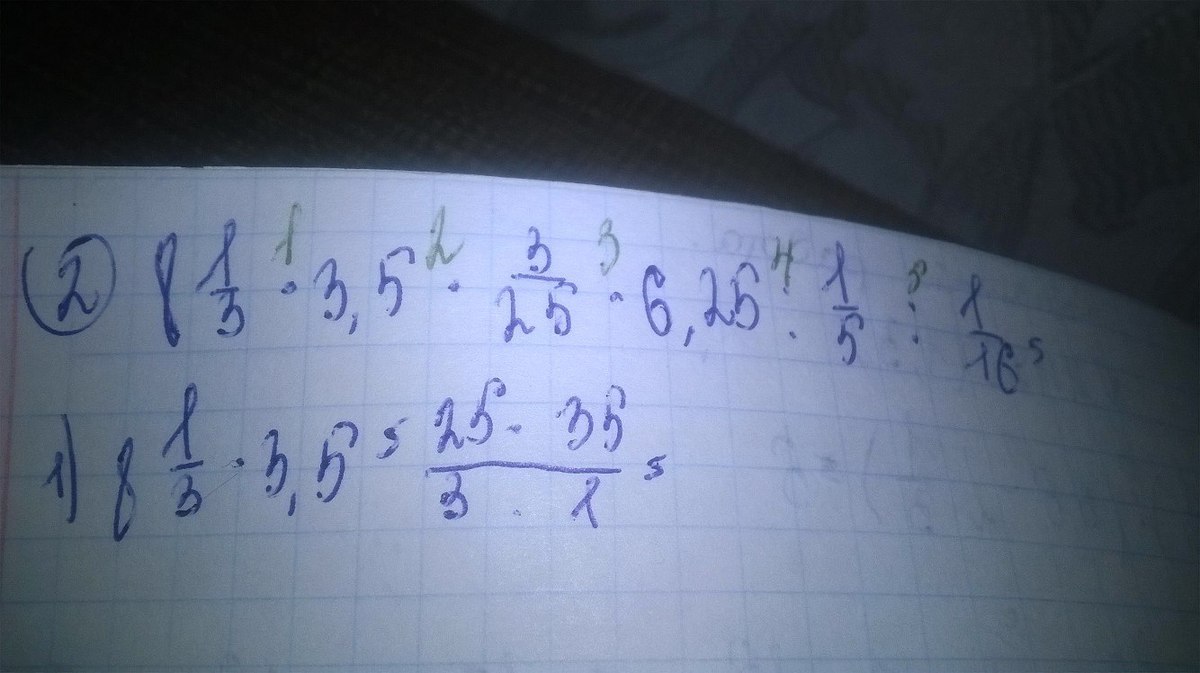 ② 8 1/3 · 3,5 · 3/25 · 6,25 · 1/5 : 1/16 =
1) 8 1/3 · 3,5 = 25 · 35 / 3 · 1 =